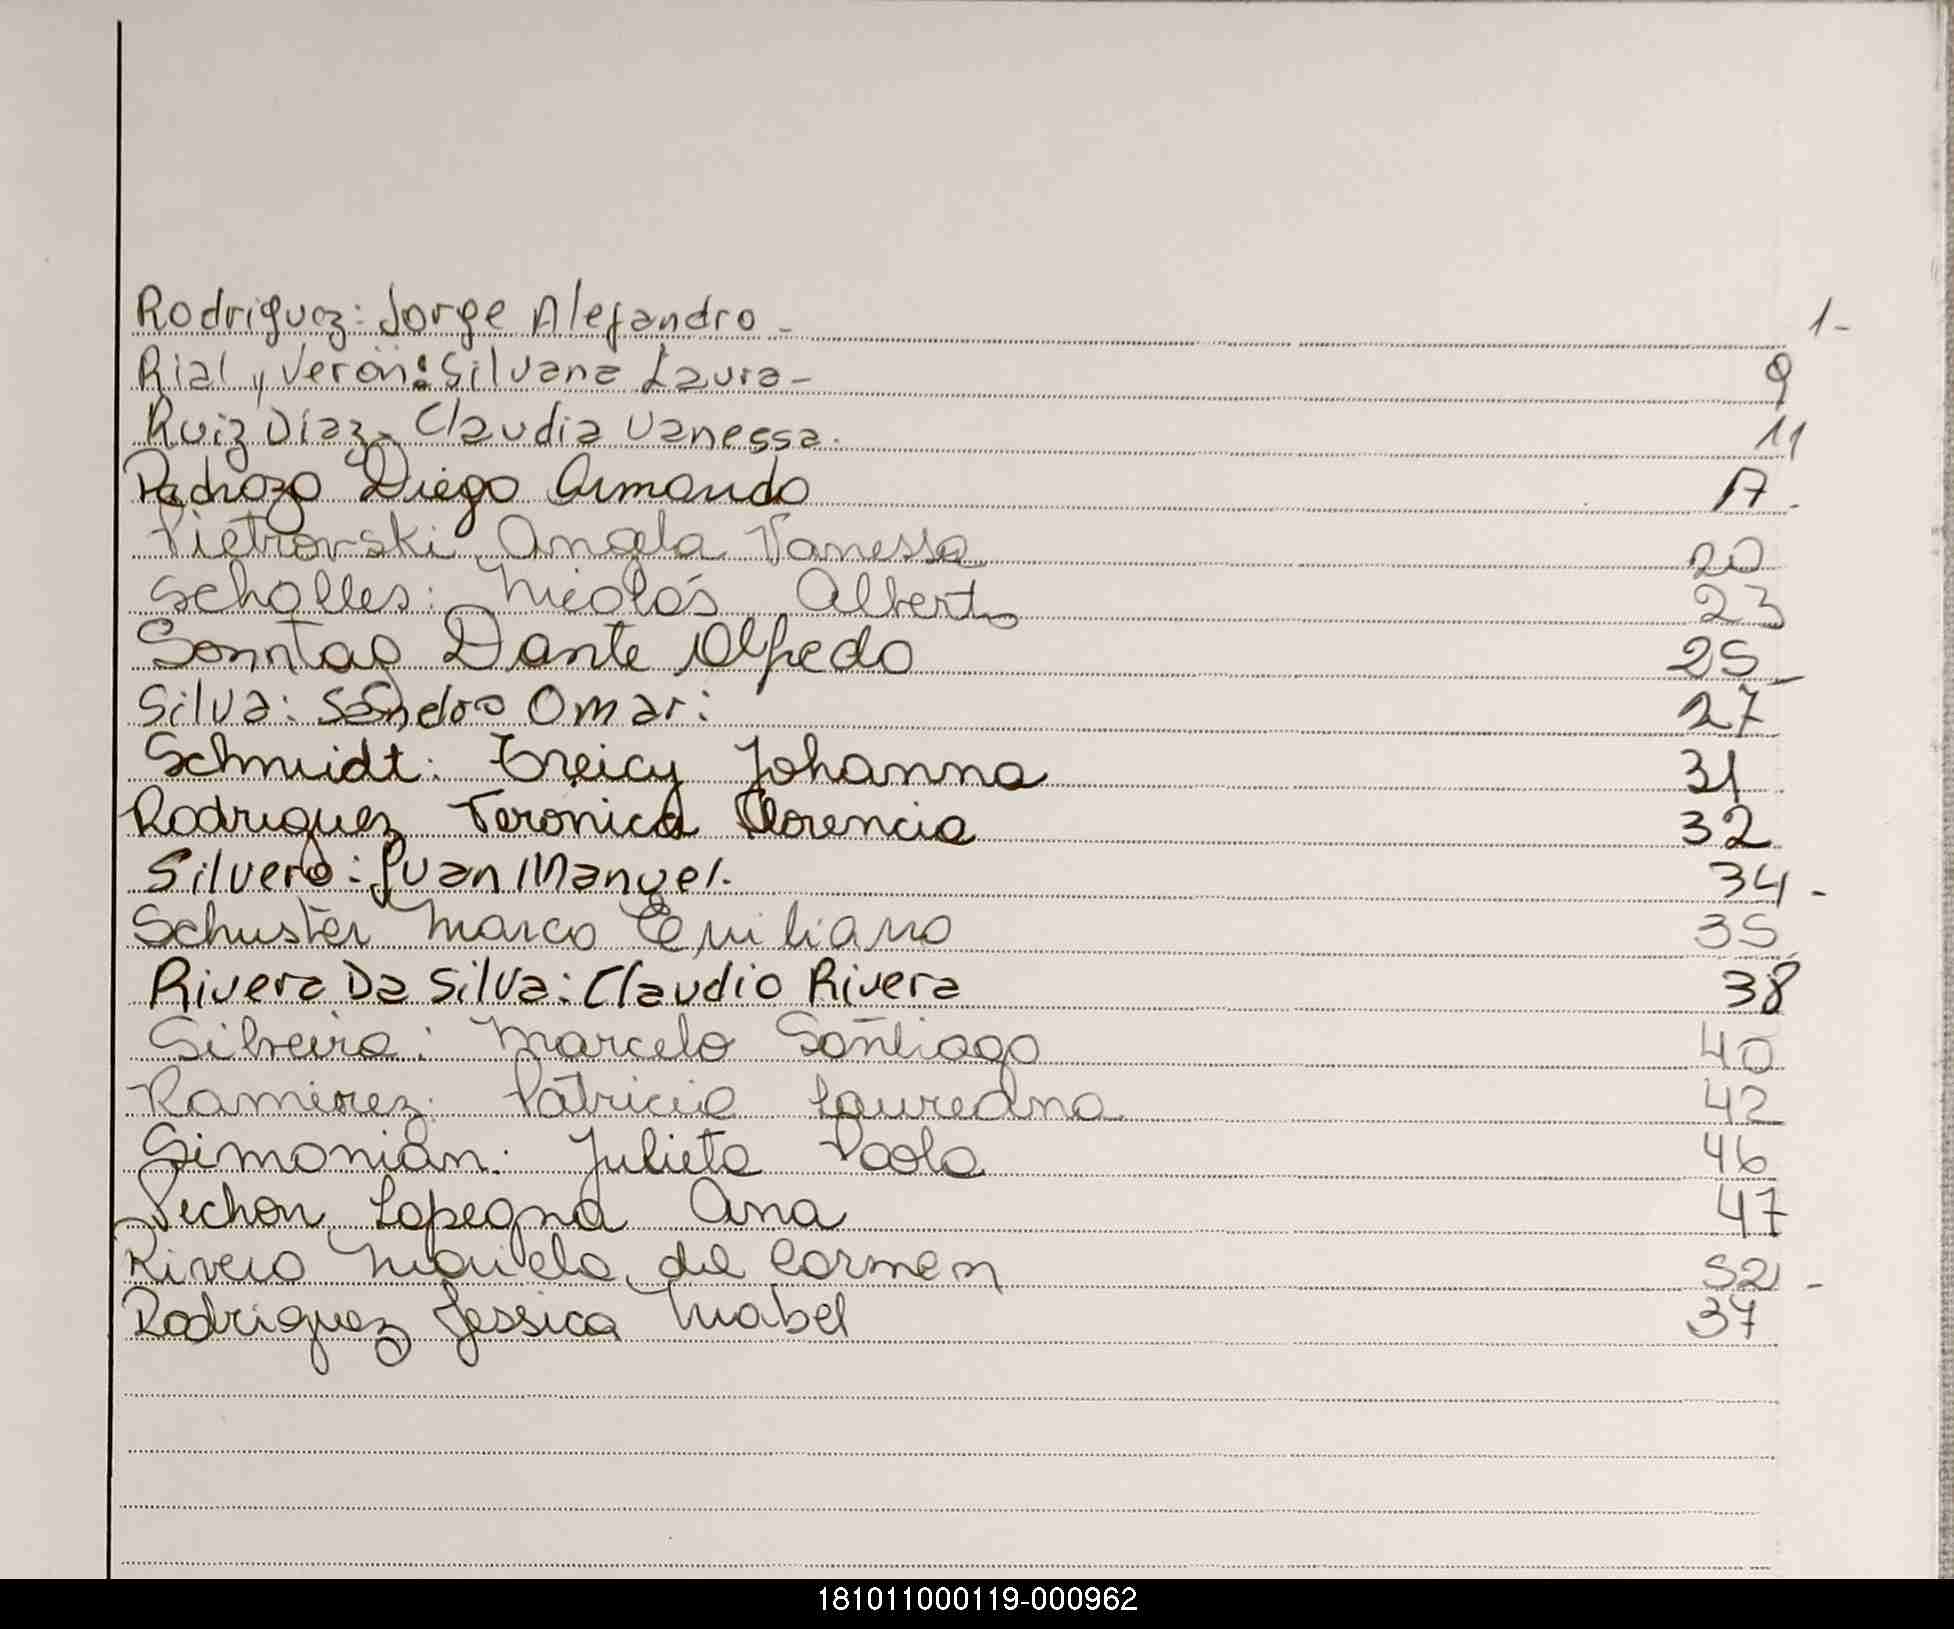 Rodriguez: Jorge Alejandro - 1-
Rial y Verón: Silvana Laura - 9
Ruiz Diaz, Claudia Vanessa. 11
Pedrozo Diego Armando 17.
Pietrovski Angela Vanessa 20
Scholles: Nicolás Alberto 23
Sonntag Dante Alfredo 25
Silva: Sandro Omar: 27
Schmidt: Greicy Johanna 31
Rodriguez Veronica Florencia 32
Silvero: Juan Manuel. 34-
Schuster Marco Emiliano 35
Rivera Da Silva: Claudio Rivera 38
Silveira: Marcelo Santiago 40
Ramirez: Patricia Laureana 42
Simonian: Julieta Paola 46
Pechon Lapegna Ana 47
Rivero Mariela del Carmen 52-
Rodriguez Jessica Mabel 37
181011000119-000962